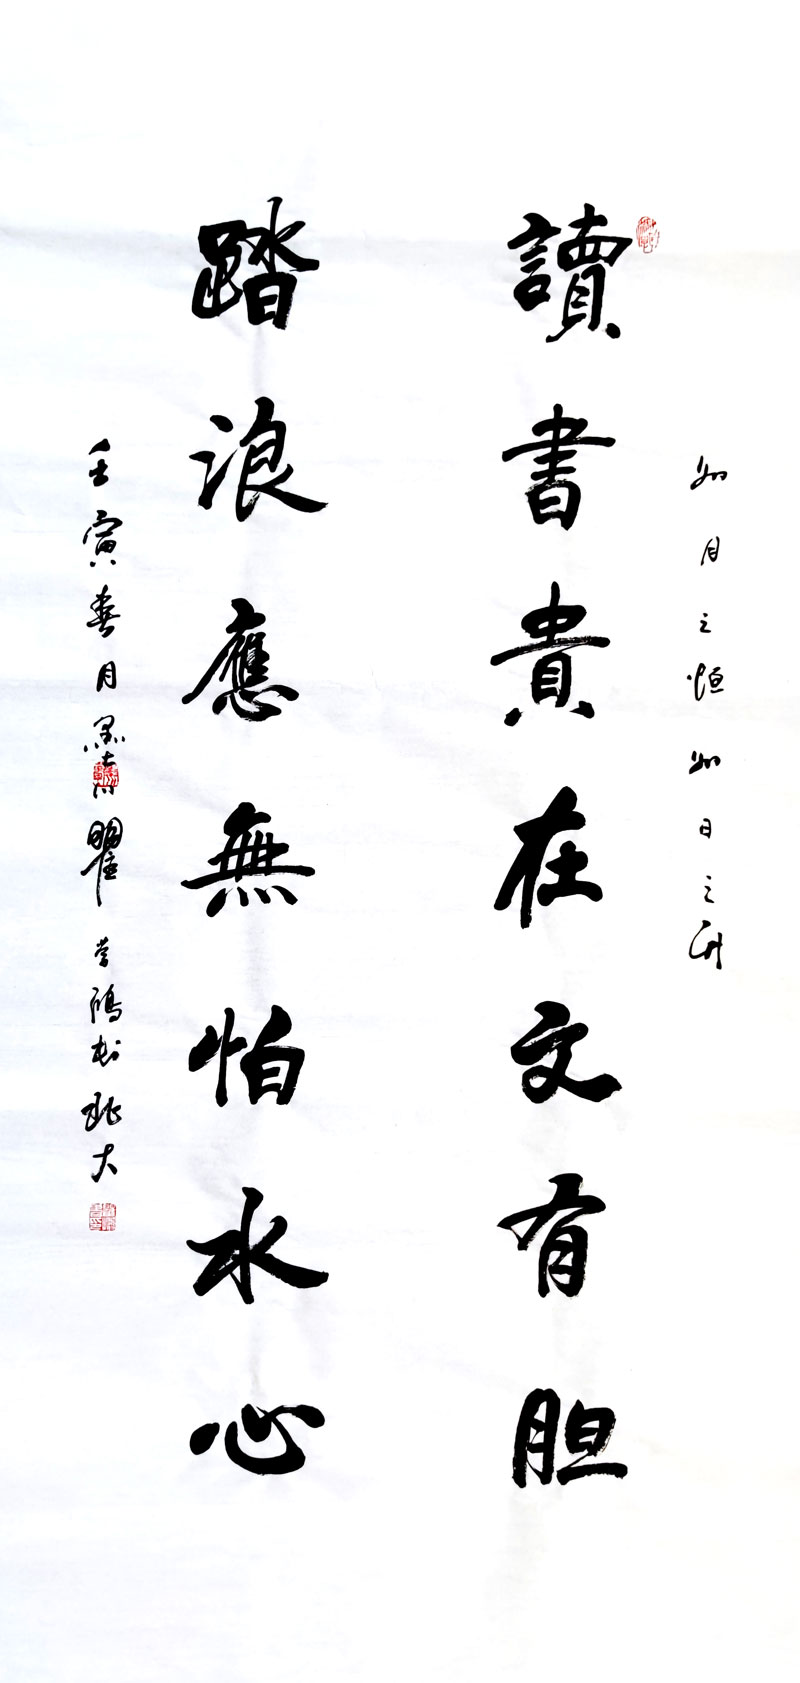 如月之恒如日之升
讀書貴在文有胆
踏浪應無怕水心
壬寅春月墨 瞿 於北大